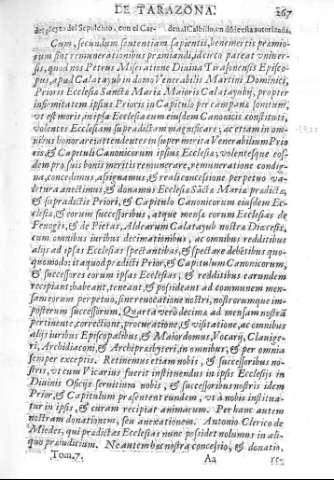 DE TARAZONA. 267
del pleyto del Sepulchro, con el Cardenal Cabildo, en esta autoridada.
Cum, secundum sententiam sapientis, benemeritis præmio
sint remunerationibus præmiandi, idcirco pateat vniver-
sis, quod nos Petrus Miseratione Divina Tirasonensis Episco-
pus, apud Calatayub in domo Venerabilis Martini Dominici,
Prioris Ecclesiæ Sanctæ Mariæ Maioris Calatayubij, propter
infirmitatem ipsius Prioris in Capitulo per campanæ sonitum,
vt est moris in ipsa Ecclesia cum eiusdem Canonicis constituti,
volentes Ecclesiam supradictam magnificare; ac etiam in om-
nibus honorare; attendentes in super merita Venerabilium Prio
ris & Capituli Canonicorum ipsius Ecclesiæ; volentesque eos
dem pro suis bonis meritis remunerare, remuneratione condi-
gna, concedimus, assignamus, & reali concessione perpetuo va-
litura annectimus, & donamus Ecclesiæ Sãctæ Mariæ prædictæ,
& supradictis Priori, & Capitulo Canonicorum eiusdem Ec-
clesiæ, & eorum successoribus, atque mensæ eorum Ecclesias de
Fenogès, & de Pietas, Aldearum Calatayub nostræ Diœcesis,
cum omnibus iuribus decimationibus, ac omnibus redditibus
alijs ad ipsas Ecclesias spectantibus, & spectare debẽtibus quo-
quomodo: ita quod prædicti Prior, & Capitulum Canonicorum,
& successores eorum ipsas Ecclesias, & redditus earundem
recipiant, habeant, teneant, & possideant ad communem men-
sam eorum perpetuo, sine revocatione nostri, nostrorumque im-
posterum successorum. Quarta vero decima ad mensam nostrã
pertinente, correctione, procuratione, & visitatione, ac omnibus
alijs iuribus Episcopalibus, & Maiordomus, Vocarij, Clavige-
ri, Archidiaconi, & Archipresbyteri, in omnibus, & per omnia
semper exceptis. Retinemus etiam nobis, & successoribus no-
stris, vt cum Vicarius fuerit instituendus in ipsis Ecclesijs in
Divinis Officijs serviturus nobis, & successoribus nostris idem
Prior, & Capitulum præsentent eundem, vt à nobis institua-
tur in ipsis, & curam recipiat animarum. Per hanc autem
nostram donationem, seu annexationem. Antonio Clerico de
Miedes, qui prædictas Ecclesias nunc possidet nolumus in ali-
quo præiudicium. Ne autem hæc nostra concessio, & donatio,
Tom. 7. Aa